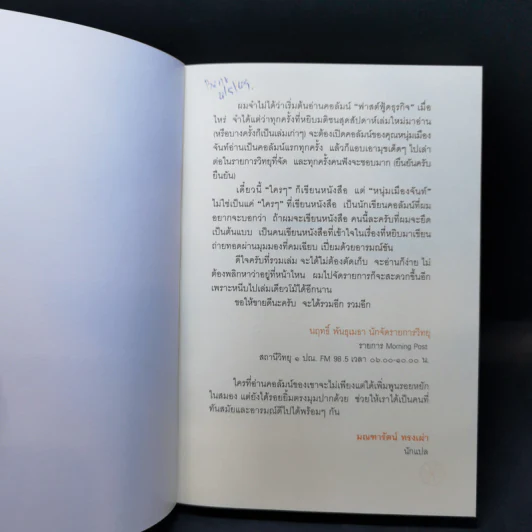 ผมจำไม่ได้ว่าเริ่มต้นอ่านคอลัมน์ "ฟาสต์ฟู้ดธุรกิจ" เมื่อ
ไหร่ จำได้แต่ว่าทุกครั้งที่หยิบมติชนสุดสัปดาห์เล่มใหม่มาอ่าน
(หรือบางครั้งก็เป็นเล่มเก่าๆ) จะต้องเปิดคอลัมน์ของคุณหนุ่มเมือง
จันท์อ่านเป็นคอลัมน์แรกทุกครั้ง แล้วก็แอบเอามุขเด็ดๆ ไปเล่า
ต่อในรายการวิทยุที่จัด และทุกครั้งคนฟังจะชอบมาก (ยืนยันครับ
ยืนยัน)
เดี๋ยวนี้ "ใครๆ" ก็เขียนหนังสือ แต่ "หนุ่มเมืองจันท์"
ไม่ใช่เป็นแค่ "ใครๆ" ที่เขียนหนังสือ เป็นนักเขียนคอลัมน์ที่ผม
อยากจะบอกว่า ถ้าผมจะเขียนหนังสือ คนนี้ละครับที่ผมจะยึด
เป็นต้นแบบ เป็นคนเขียนหนังสือที่เข้าใจในเรื่องที่หยิบมาเขียน
ถ่ายทอดผ่านมุมมองที่คมเฉียบ เปี่ยมด้วยอารมณ์ขัน
ดีใจครับที่รวมเล่ม จะได้ไม่ต้องตัดเก็บ จะอ่านก็ง่าย ไม่
ต้องพลิกหาว่าอยู่ที่หน้าไหน ผมไปจัดรายการก็จะสะดวกขึ้นอีก
เพราะหนีบไปเล่มเดียวโม้ได้อีกนาน
ขอให้ขายดีนะครับ จะได้รวมอีก รวมอีก
นฤทธิ์ พันธุเมธา นักจัดรายการวิทยุ
รายการ Morning Post
สถานีวิทยุ ๑ ปณ. FM 98.5 เวลา ๐๖.๐๐-๑๐.๐๐ น.
ใครที่อ่านคอลัมน์ของเขาจะไม่เพียงแต่ได้เพิ่มพูนรอยหยัก
ในสมอง แต่ยังได้รอยยิ้มตรงมุมปากด้วย ช่วยให้เราได้เป็นคนที่
ทันสมัยและอารมณ์ดีไปได้พร้อมๆ กัน
มณฑารัตน์ ทรงเผ่า
นักแปล